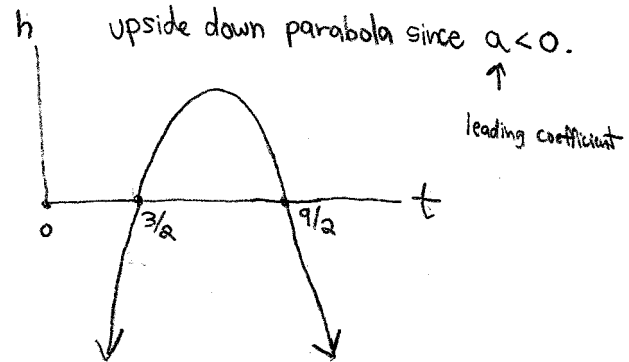 h
upside down parabola since a < 0.
↑
leading coefficient
t
0
3/2
9/2